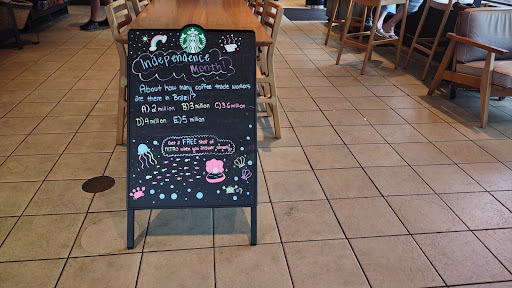 Independence
Month!
About how many coffee trade workers
are there in Brazil?
A) 2 million B) 3 million C) 3.6 million
D) 4 million E) 5 million
Get a FREE shot of
when you answer